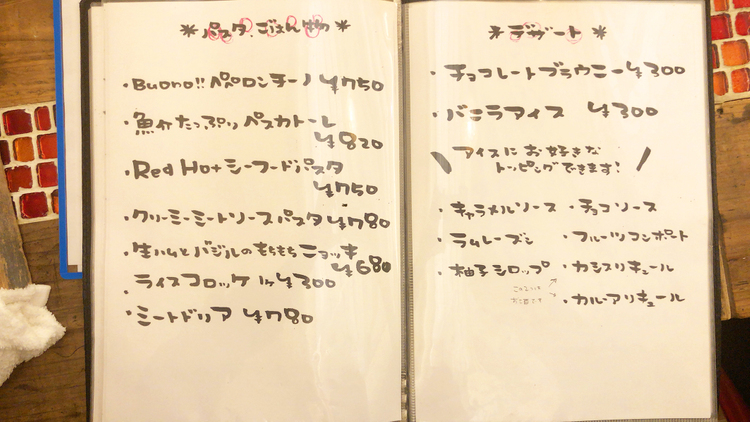 ＊パスタ、ごはん物＊
・Buono!! ペペロンチーノ ¥750
・魚介たっぷりペスカトーレ
¥820
・Red Hot シーフードパスタ
¥750
・クリーミーミートソースパスタ ¥780
・生ハムとバジルのもちもちニョッキ
¥680
・ライスコロッケ 1ヶ ¥300
・ミートドリア ¥780
＊デザート＊
・チョコレートブラウニー ¥300
・バニラアイス ¥300
\ アイスにお好きな
トッピングできます! /
・キャラメルソース ・チョコソース
・ラムレーズン ・フルーツコンポート
・柚子シロップ ・カシスリキュール
・カルーアリキュール